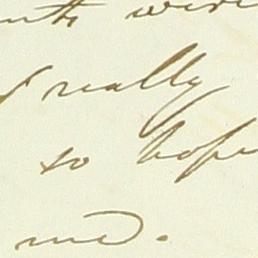 were
really
to hope
me.